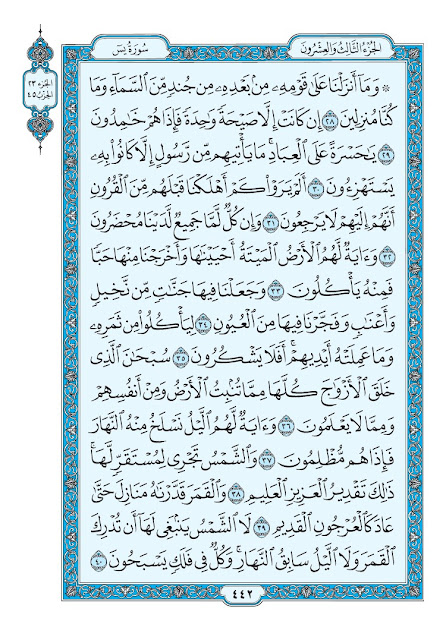 الجزء الثالث والعشرون
سورة يس
الجزء ٢٣
الحزب ٤٥
۞ وَمَا أَنزَلْنَا عَلَىٰ قَوْمِهِۦ مِنۢ بَعْدِهِۦ مِن جُندٍ مِّنَ ٱلسَّمَآءِ وَمَا
كُنَّا مُنزِلِينَ ٢٨ إِن كَانَتْ إِلَّا صَيْحَةً وَٰحِدَةً فَإِذَا هُمْ خَٰمِدُونَ
٢٩ يَٰحَسْرَةً عَلَى ٱلْعِبَادِ ۚ مَا يَأْتِيهِم مِّن رَّسُولٍ إِلَّا كَانُوا۟ بِهِۦ
يَسْتَهْزِءُونَ ٣٠ أَلَمْ يَرَوْا۟ كَمْ أَهْلَكْنَا قَبْلَهُم مِّنَ ٱلْقُرُونِ
أَنَّهُمْ إِلَيْهِمْ لَا يَرْجِعُونَ ٣١ وَإِن كُلٌّ لَّمَّا جَمِيعٌ لَّدَيْنَا مُحْضَرُونَ
٣٢ وَءَايَةٌ لَّهُمُ ٱلْأَرْضُ ٱلْمَيْتَةُ أَحْيَيْنَٰهَا وَأَخْرَجْنَا مِنْهَا حَبًّا
فَمِنْهُ يَأْكُلُونَ ٣٣ وَجَعَلْنَا فِيهَا جَنَّٰتٍ مِّن نَّخِيلٍ
وَأَعْنَٰبٍ وَفَجَّرْنَا فِيهَا مِنَ ٱلْعُيُونِ ٣٤ لِيَأْكُلُوا۟ مِن ثَمَرِهِۦ
وَمَا عَمِلَتْهُ أَيْدِيهِمْ ۖ أَفَلَا يَشْكُرُونَ ٣٥ سُبْحَٰنَ ٱلَّذِى
خَلَقَ ٱلْأَزْوَٰجَ كُلَّهَا مِمَّا تُنۢبِتُ ٱلْأَرْضُ وَمِنْ أَنفُسِهِمْ
وَمِمَّا لَا يَعْلَمُونَ ٣٦ وَءَايَةٌ لَّهُمُ ٱلَّيْلُ نَسْلَخُ مِنْهُ ٱلنَّهَارَ
فَإِذَا هُم مُّظْلِمُونَ ٣٧ وَٱلشَّمْسُ تَجْرِى لِمُسْتَقَرٍّ لَّهَا ۚ
ذَٰلِكَ تَقْدِيرُ ٱلْعَزِيزِ ٱلْعَلِيمِ ٣٨ وَٱلْقَمَرَ قَدَّرْنَٰهُ مَنَازِلَ حَتَّىٰ
عَادَ كَٱلْعُرْجُونِ ٱلْقَدِيمِ ٣٩ لَا ٱلشَّمْسُ يَنۢبَغِى لَهَآ أَن تُدْرِكَ
ٱلْقَمَرَ وَلَا ٱلَّيْلُ سَابِقُ ٱلنَّهَارِ ۚ وَكُلٌّ فِى فَلَكٍ يَسْبَحُونَ ٤٠
٤٤٢